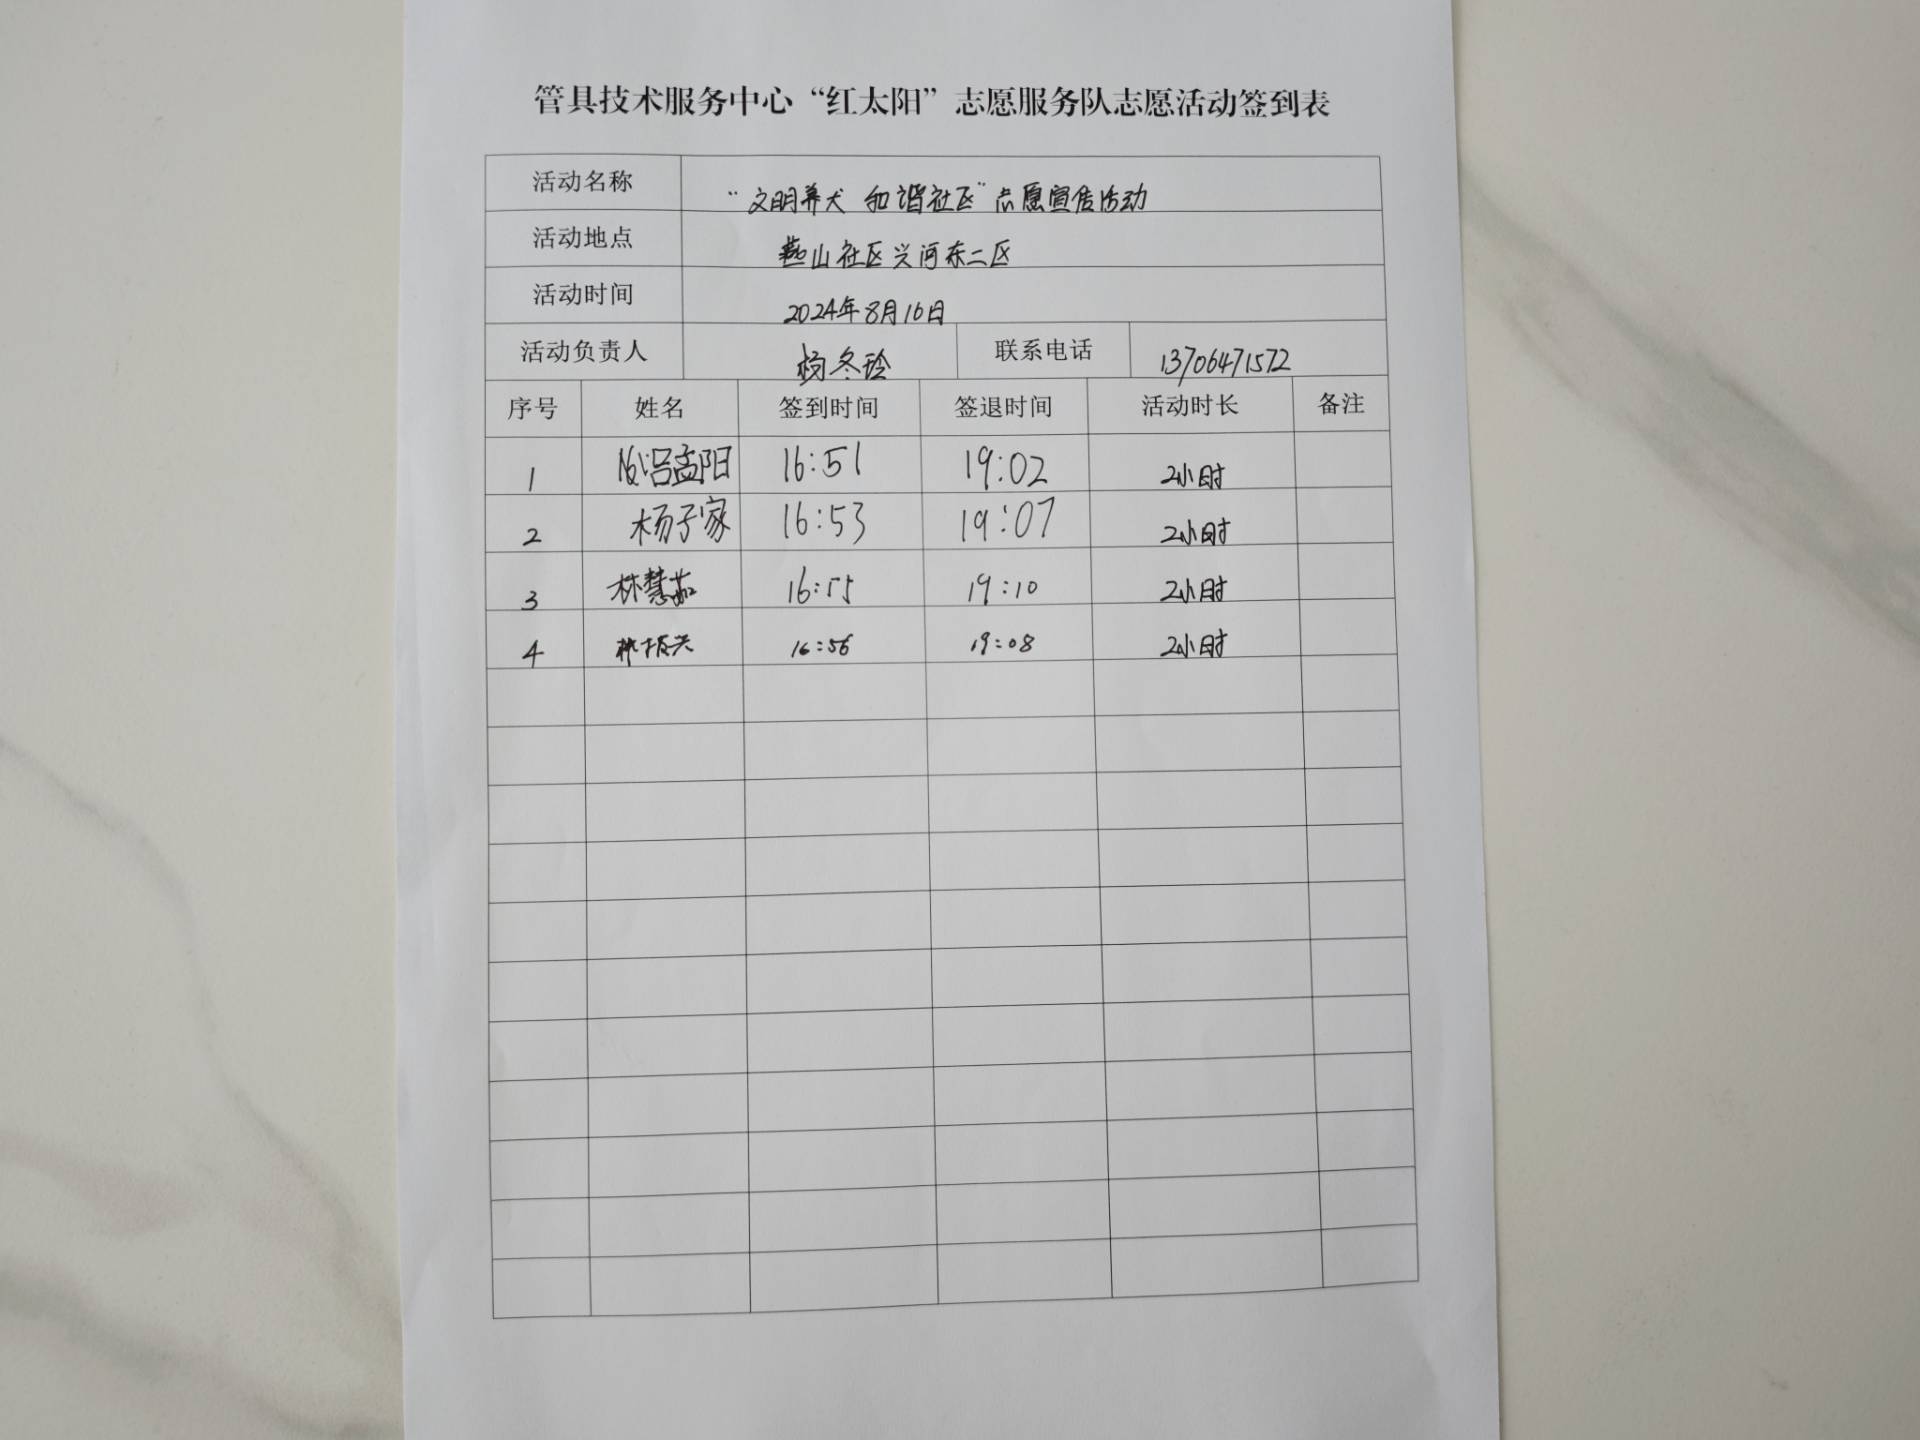 管具技术服务中心“红太阳”志愿服务队志愿活动签到表
活动名称 “文明养犬 和谐社区”志愿宣传活动
活动地点 燕山社区兴河东二区
活动时间 2024年8月16日
活动负责人 杨冬玲 联系电话 13706471572
序号 姓名 签到时间 签退时间 活动时长 备注
1 吕孟阳 16:51 19:02 2小时
2 杨子家 16:53 19:07 2小时
3 林慧茹 16:55 19:10 2小时
4 林振兴 16:56 19:08 2小时